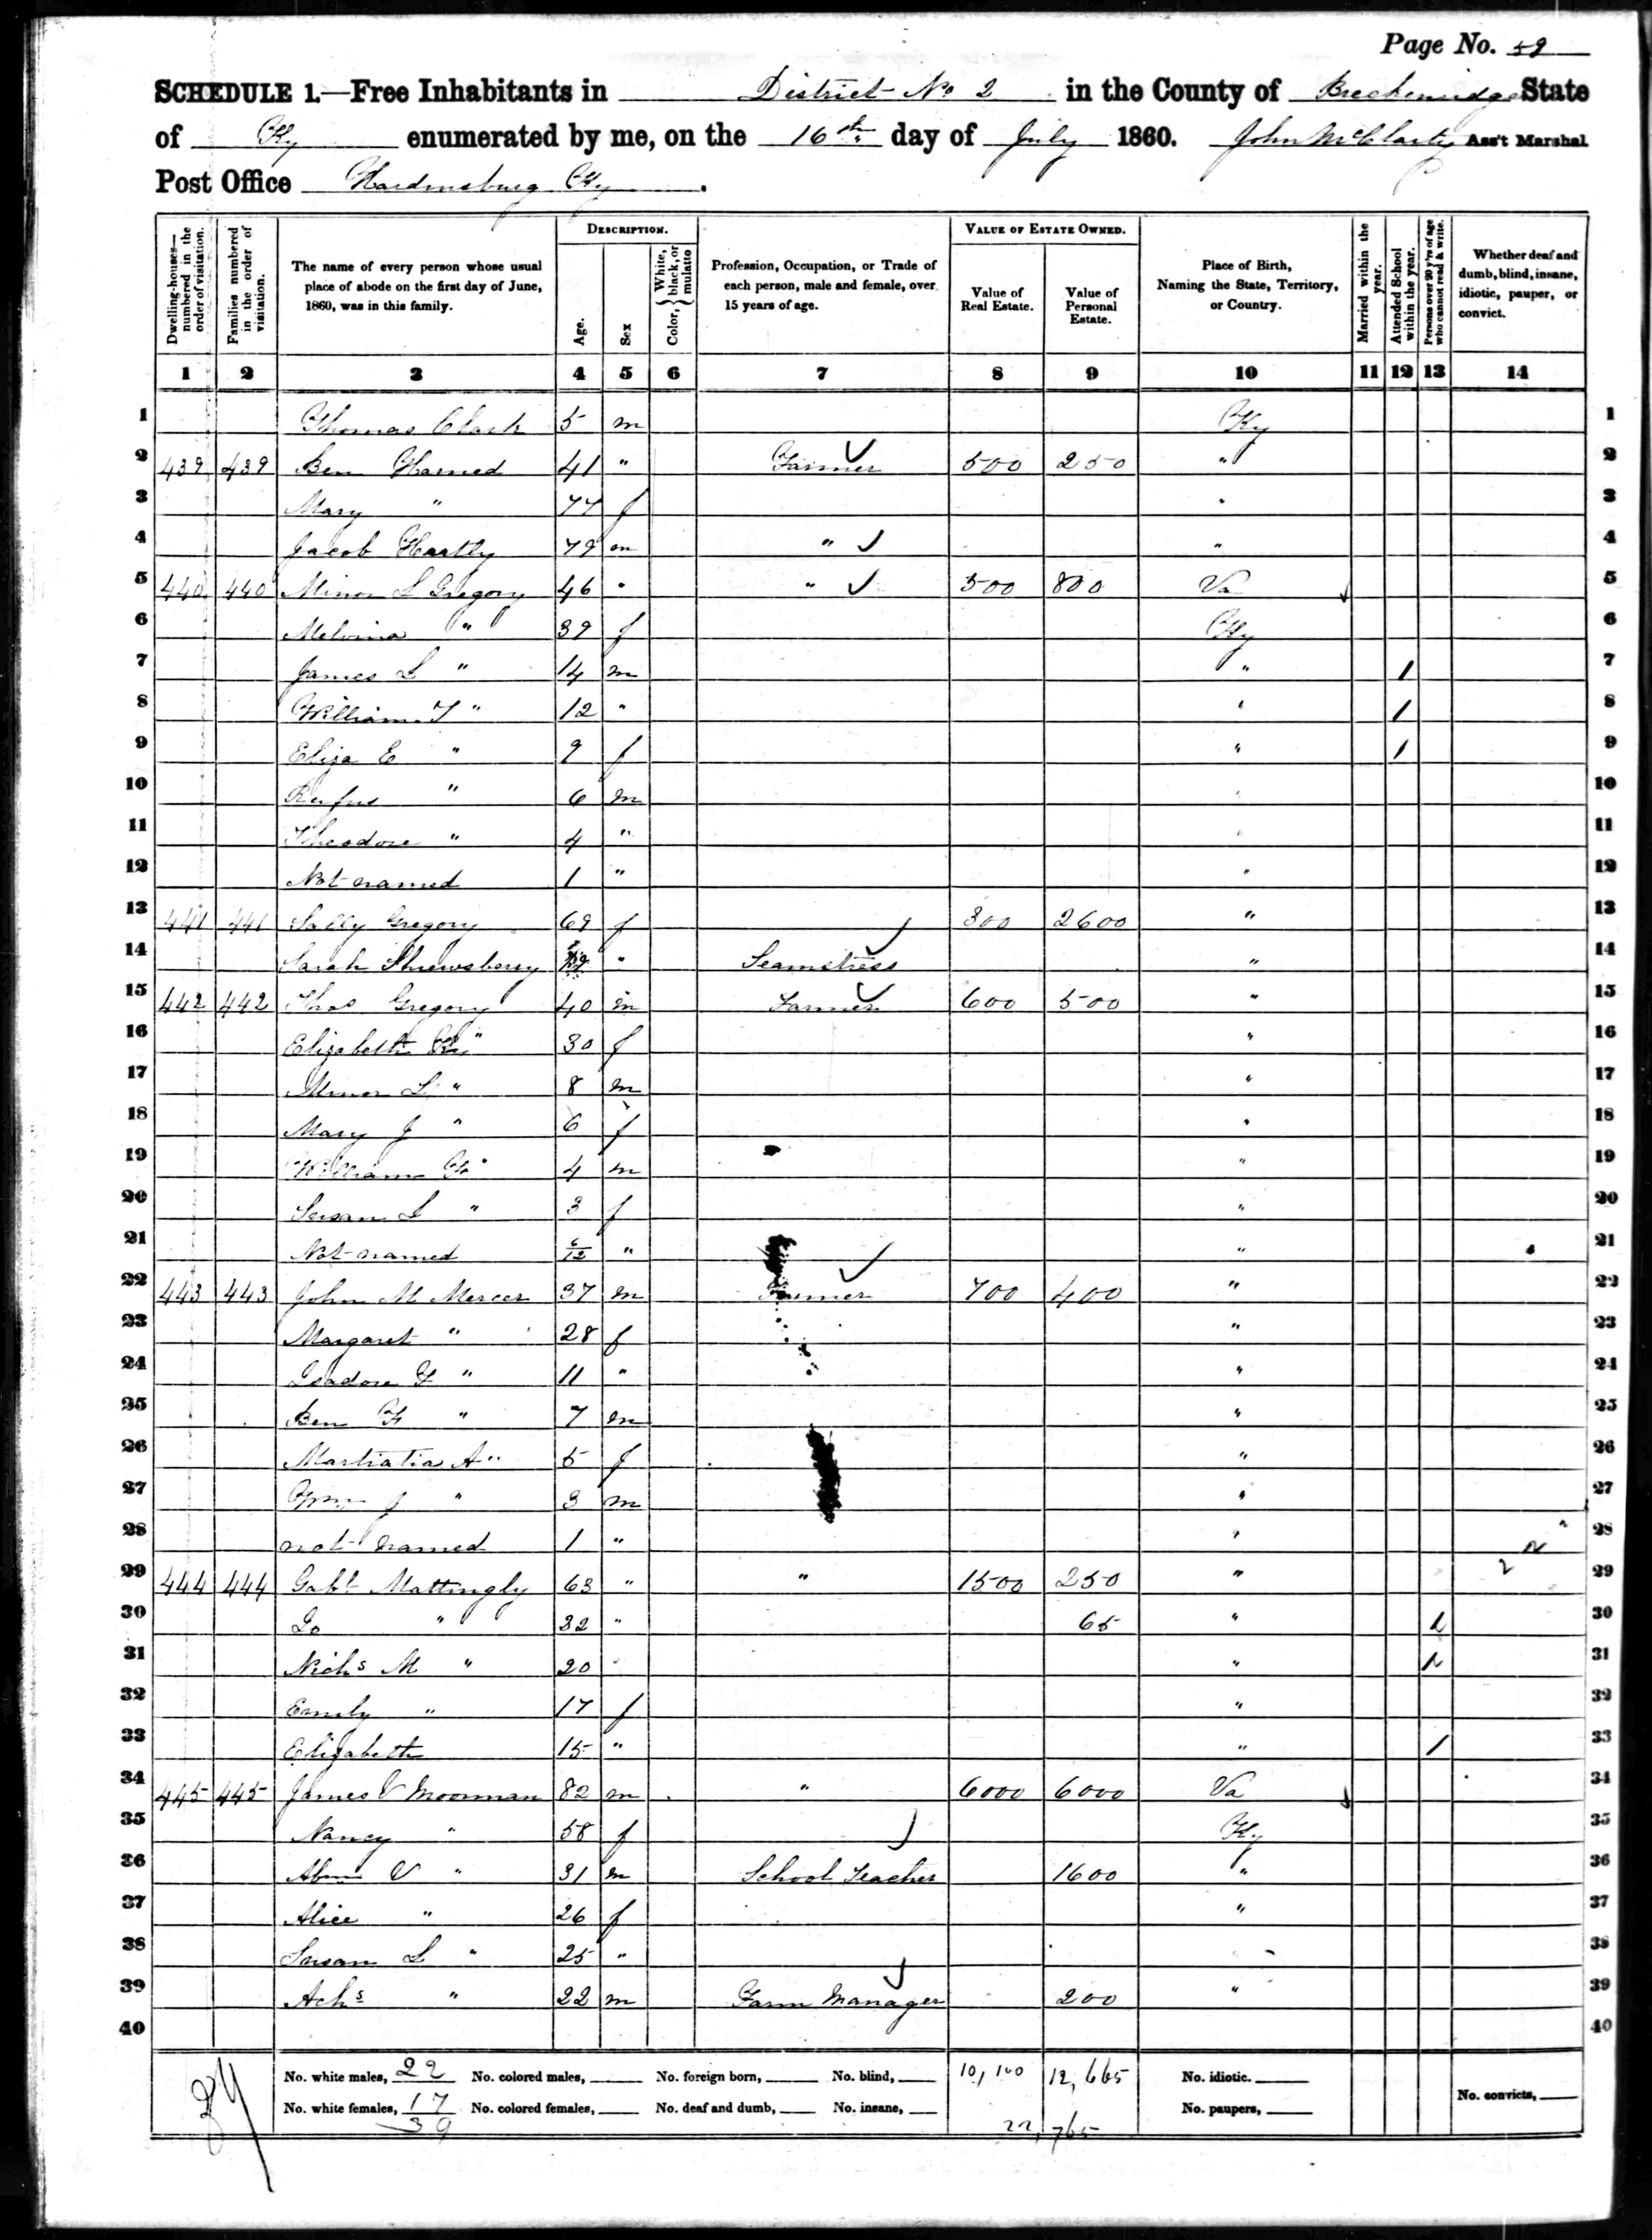 Page No. 59
SCHEDULE 1.—Free Inhabitants in District No 2 in the County of Breckenridge State
of Ky enumerated by me, on the 16th day of July 1860. John McClarty Ass't Marshal
Post Office Hardinsburg Ky.
Dwelling-houses—numbered in the order of visitation.
Families numbered in the order of visitation.
The name of every person whose usual place of abode on the first day of June, 1860, was in this family.
DESCRIPTION.
Age.
Sex
Color, White, black, or mulatto
Profession, Occupation, or Trade of each person, male and female, over 15 years of age.
VALUE OF ESTATE OWNED.
Value of Real Estate.
Value of Personal Estate.
Place of Birth, Naming the State, Territory, or Country.
Married within the year.
Attended School within the year.
Persons over 20 y'rs of age who cannot read & write.
Whether deaf and dumb, blind, insane, idiotic, pauper, or convict.
1 2 3 4 5 6 7 8 9 10 11 12 13 14
1 Thomas Clark 5 m Ky 1
2 439 439 Ben Harned 41 " Farmer 500 250 " 2
3 Mary " 77 f " 3
4 Jacob Hartly 79 m " " 4
5 440 440 Minor L Gregory 46 " " 500 800 Va 5
6 Melvina " 39 f Ky 6
7 James L " 14 m " / 7
8 William T " 12 " " / 8
9 Eliza E " 9 f " / 9
10 Rufus " 6 m " 10
11 Theodore " 4 " " 11
12 Not named 1 " " 12
13 441 441 Sally Gregory 69 f 300 2600 " 13
14 Sarah Shrewsberry " Seamstress " 14
15 442 442 Thos Gregory 40 m Farmer 600 500 " 15
16 Elizabeth " 30 f " 16
17 Minor L " 8 m " 17
18 Mary J " 6 f " 18
19 William " 4 m " 19
20 Susan L " 3 f " 20
21 Not named 6/12 " " 21
22 443 443 John M Mercer 37 m Farmer 700 400 " 22
23 Margaret " 28 f " 23
24 Isadore F " 11 " " 24
25 Ben F " 7 m " 25
26 Martiatia A " 5 f " 26
27 Wm J " 3 m " 27
28 not named 1 " " 28
29 444 444 Gabl Mattingly 63 " " 1500 250 " 29
30 Do " 32 " 65 " 1 30
31 Nichs M " 20 " " 1 31
32 Emily " 17 f " 32
33 Elizabeth 15 " " / 33
34 445 445 James V Moorman 82 m " 6000 6000 Va 34
35 Nancy " 58 f Ky 35
36 V " 31 m School Teacher 1600 " 36
37 Alice " 26 f " 37
38 Susan L " 25 " " 38
39 Achs " 22 m Farm Manager 200 " 39
40 40
No. white males, 22 No. colored males, No. foreign born, No. blind, 10,100 12,665 No. idiotic.
No. white females, 17 No. colored females, No. deaf and dumb, No. insane, No. paupers, No. convicts,
39 22,765